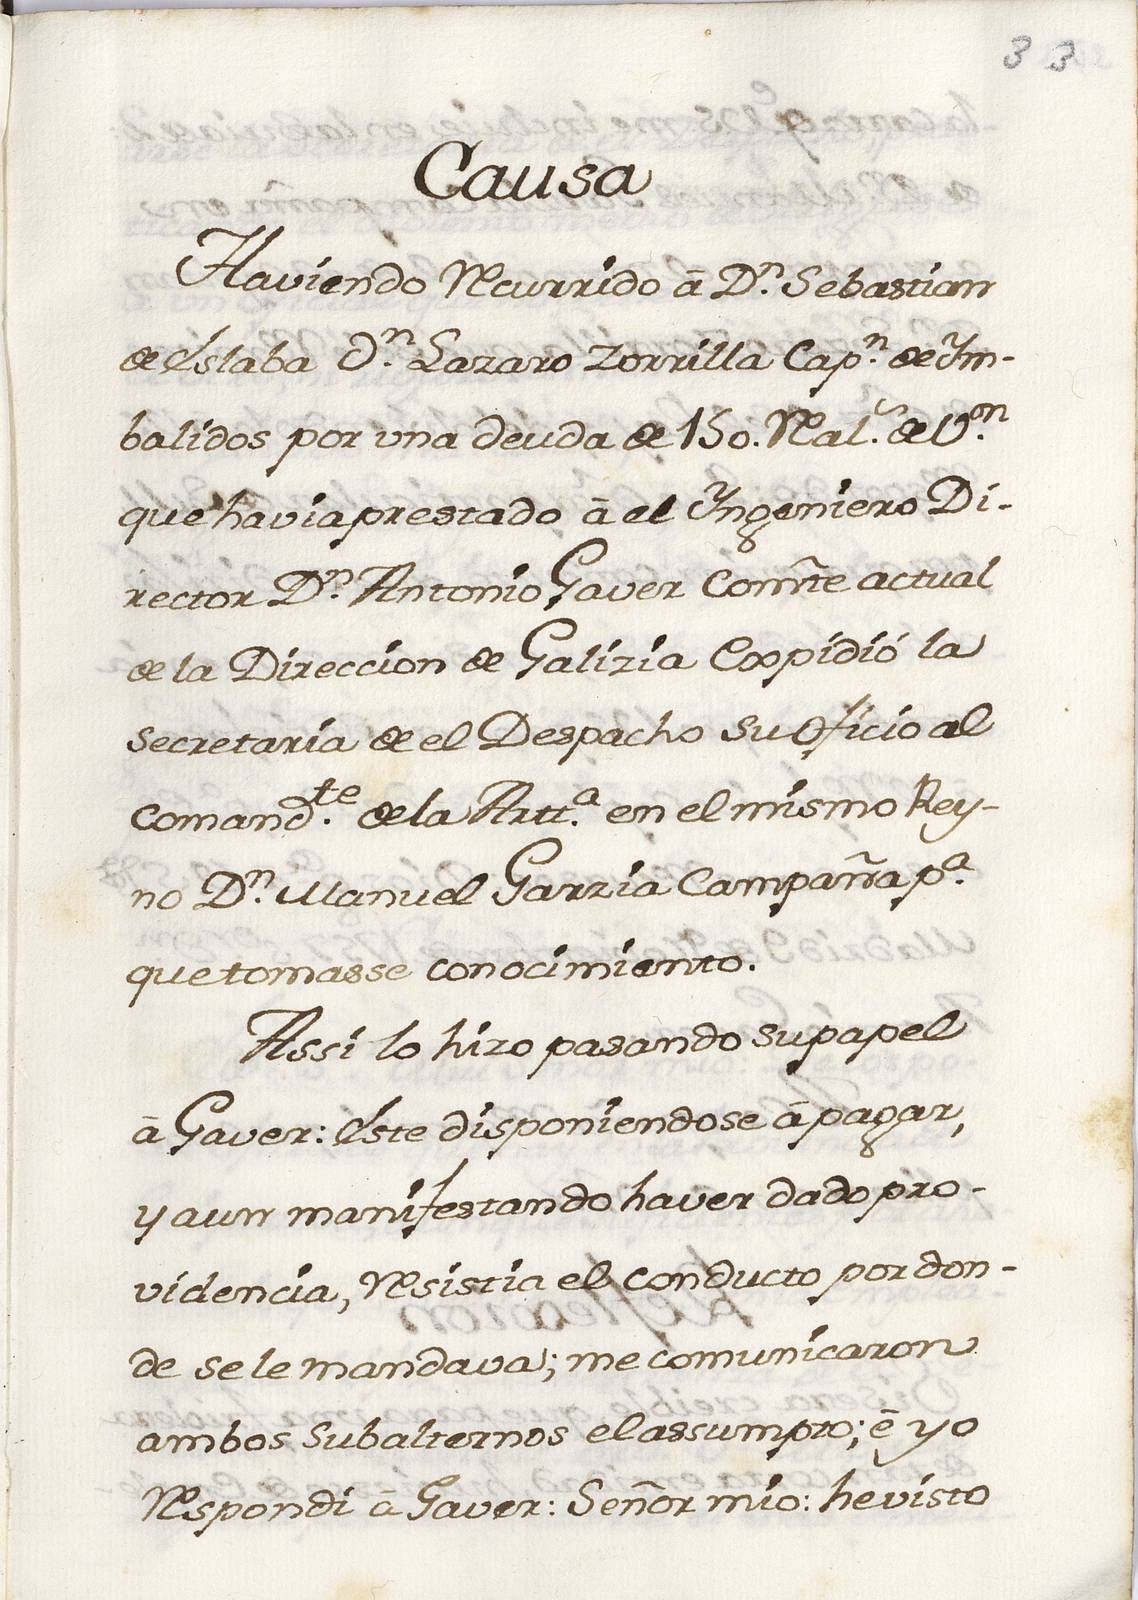 33
Causa
Haviendo Recurrido â Dn. Sebastian
de Eslaba Dn. Lazaro Zorrilla Capn. de Ym-
balidos por una deuda de 150. Rals. de Von.
que havia prestado â el Yngeniero Di-
rector Dn. Antonio Gaver Comte actual
de la Direccion de Galizia Expidió la
secretaria de el Despacho su oficio al
Comandte. de la Artta. en el mismo Rey-
no Dn. Manuel Garzia Campaña pa.
que tomasse conocimiento.
Assi lo hizo pasando su papel
â Gaver: Este disponiendose â pagar,
y aun manifestando haver dado pro-
videncia, Resistia el conducto por don-
de se le mandava; me comunicaron
ambos Subalternos el assumpto; ê yo
Respondi â Gaver: Señor mio: he visto